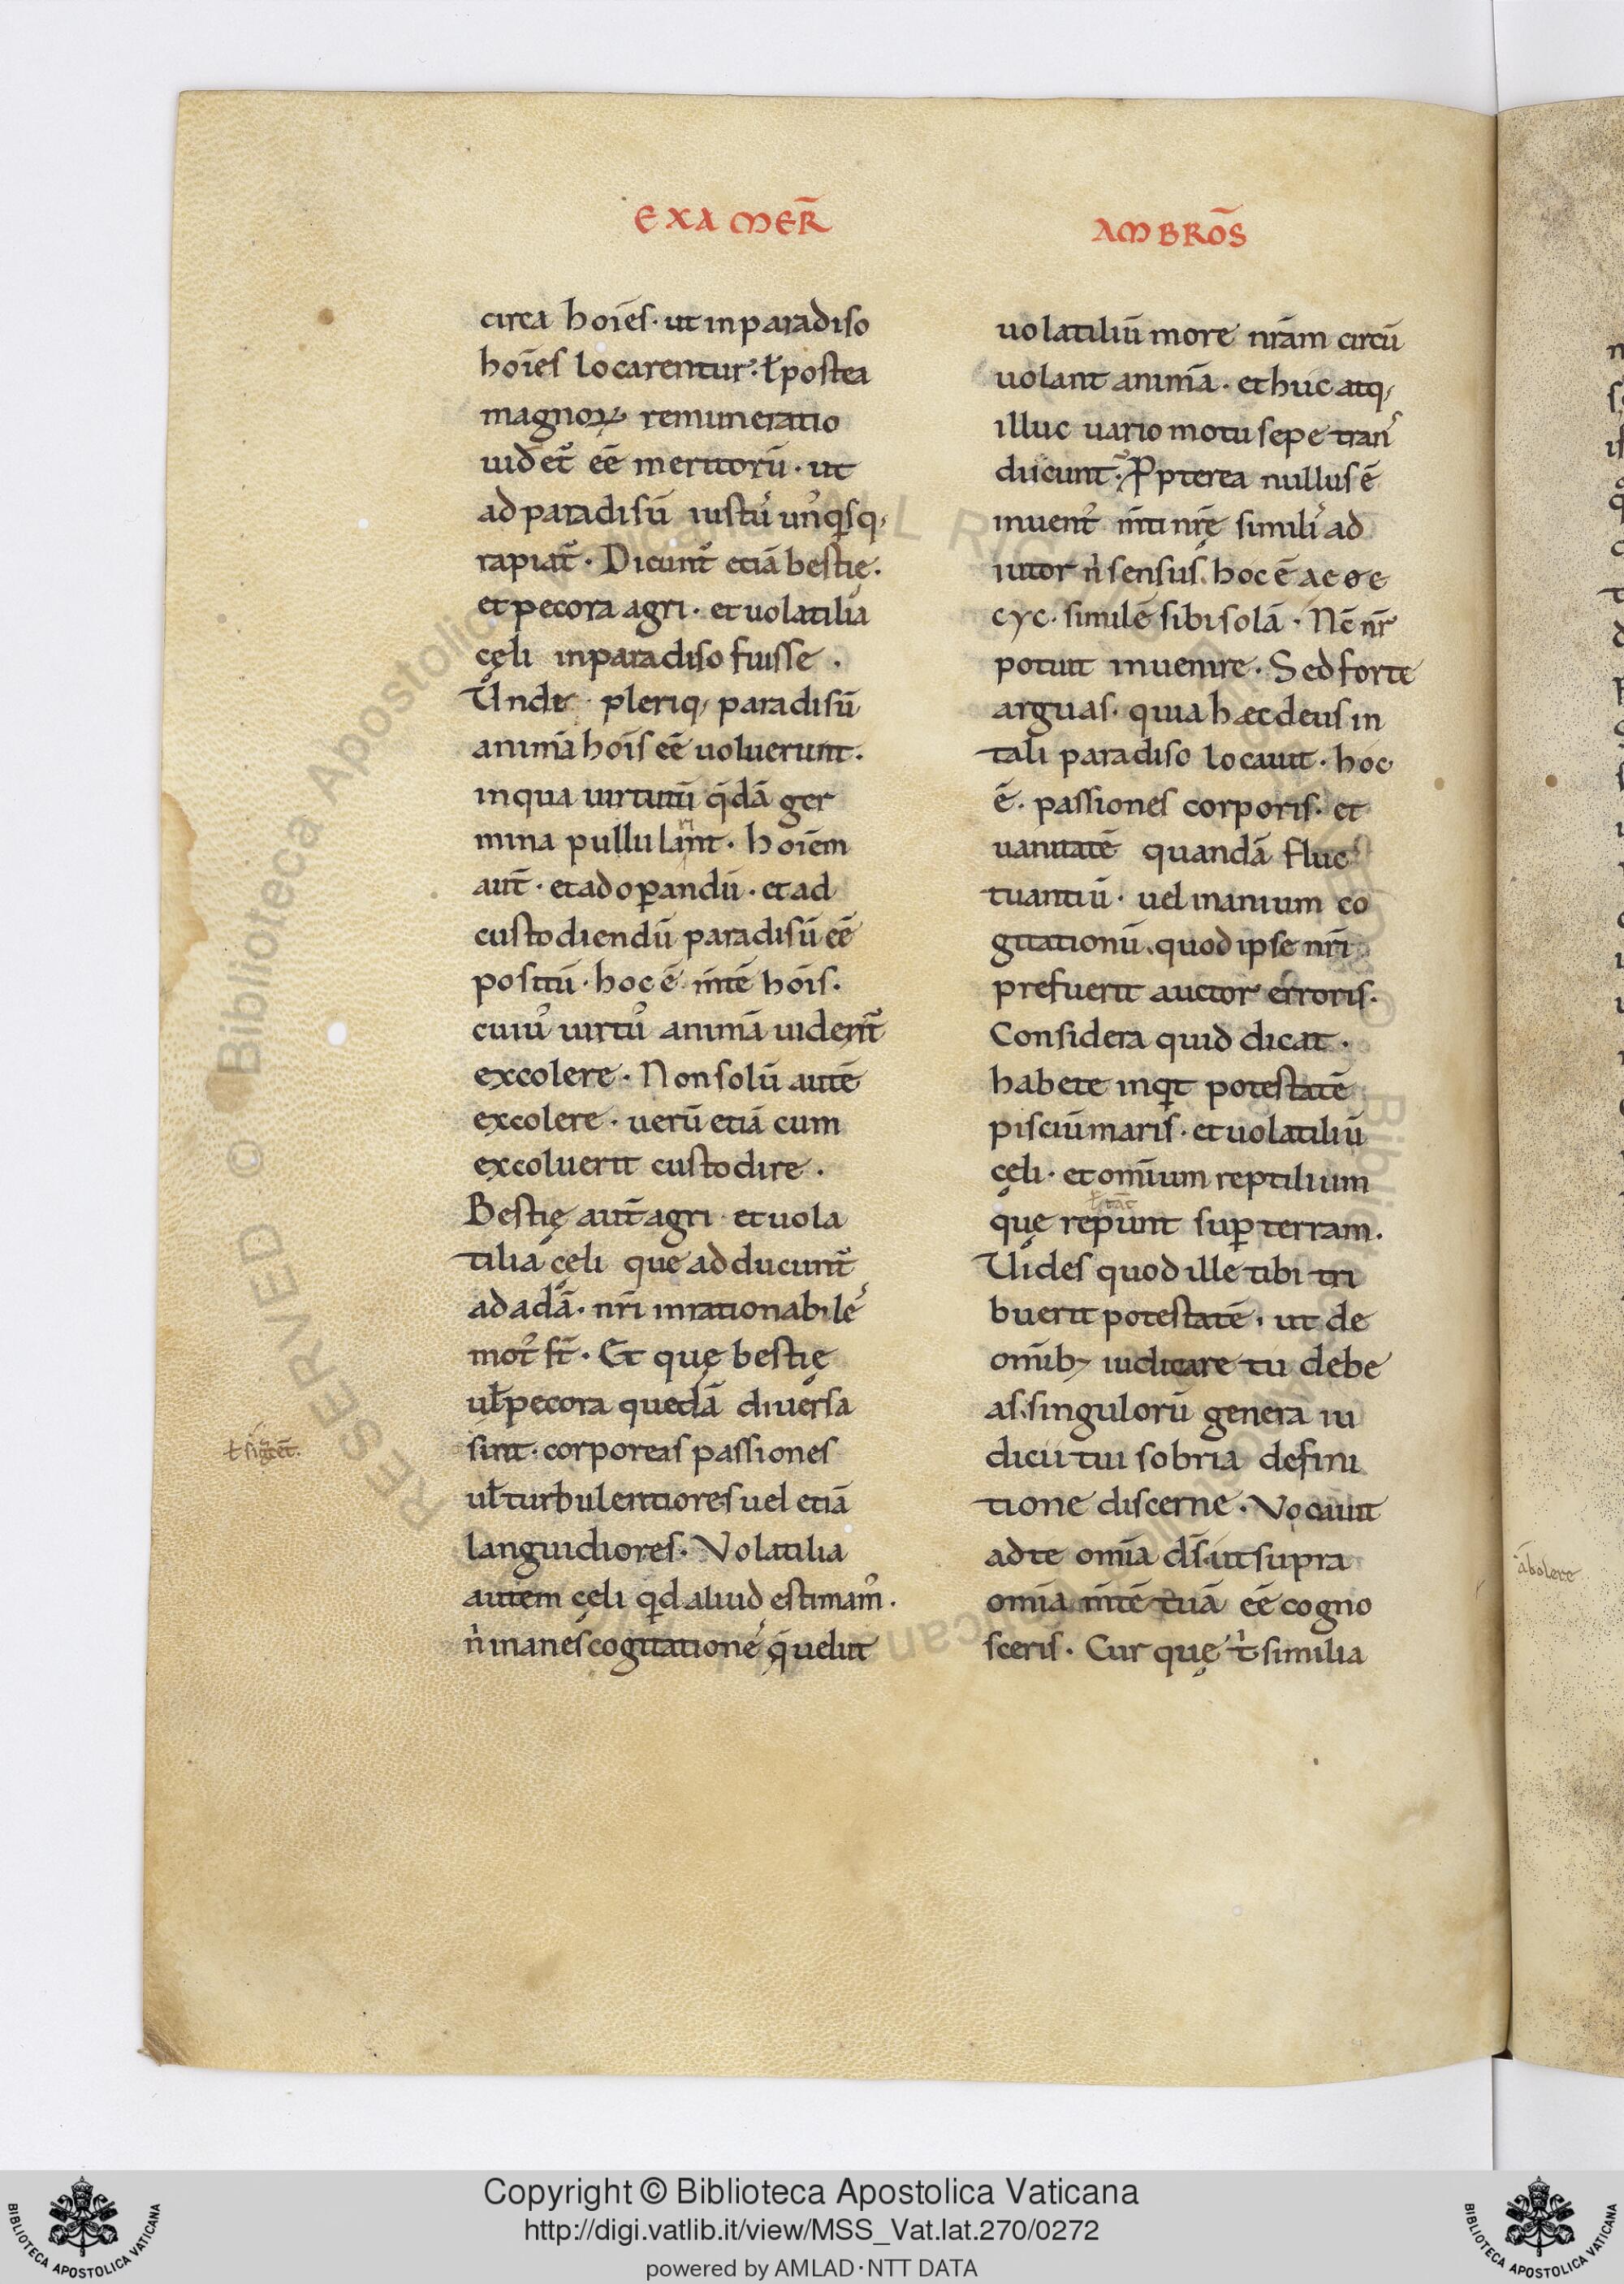 EXAMER̄
circa hoīes· ut in paradiso
hoīes locarentur· ł postea
magnoꝝ remuneratio
uidet᷑ eē meritorū· ut
ad paradisū iustꝰ unꝰq̇sq;
rapiat᷑· Dicunt᷑ etiā bestię·
et pecora agri· et uolatilia
cęli in paradiso fuisse·
Unde pleriq; paradisū
animā hoīs eē uoluerunt·
in qua uirtutū q̄dā ger
mina pullulant· hoiēm
aut̄· et ad oꝑandū· et ad
custodiendū paradisū eē
positū· hoc ē m̄tē hoīs·
cuiꝰ uirtꝰ animā uident᷑
excolere· Non solū autē
excolere· uerū etiā cum
excoluerit custodire·
Bestię aut̄ agri et uola
tilia cęli que adducunt᷑
ad adā· nr̄i inrationabileſ
motꝰ sт̄· Et quę bestię
uł pecora quedā diuersa
sint· corporeas passiones
uł turbulentiores uel etiā
languidiores· Volatilia
autem cęli q̇d aliud estimamꝰ·
n̓ inanes cogitationeſ q̄ uelut
AMBROS̄
uolatiliū more nr̄am circū
uolant animā· et huc atq;
illuc uario motu sepe tranſ
ducunt· Ꝓpterea nullus ē
inuentꝰ m̄ti nr̄ę similiſ ad
iutor n̓ sensus· hoc ē ΑΕΘΕ
CYC· similē sibi solā· Nē nr̄
potuit inuenire· Sed forte
arguas· quia hæc deus in
tali paradiso locauit· hoc
ē· passiones corporis· et
uanitatē quandā fluc
tuantiū· uel inanium co
gitationū· quod ipse nr̄i
prefuerit auctor erroris·
Considera quid dicat·
habete inqt potestatē
pisciū maris· et uolatiliū
cęli· et omīum reptilium
quę repunt suꝑ terram·
Uides quod ille tibi tri
buerit potestatē· ut de
omīb; iudicare tu debe
as· singulorū genera iu
dicii tui sobria defini
tione discerne· Vocauit
ad te omīa ds̄· ut supra
omīa m̄tē tuā eē cogno
sceris· Cur quę t̓ similia
abolere
Copyright © Biblioteca Apostolica Vaticana
http://digi.vatlib.it/view/MSS_Vat.lat.270/0272
powered by AMLAD·NTT DATA
BIBLIOTECA APOSTOLICA VATICANA
BIBLIOTECA APOSTOLICA VATICANA